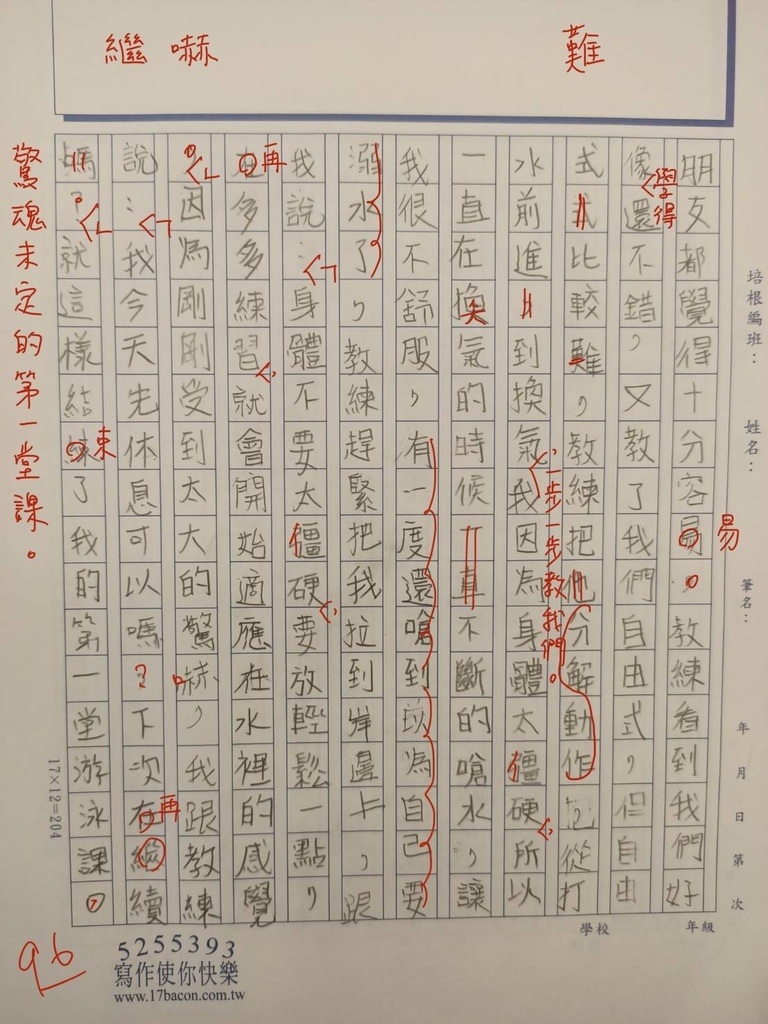 難
繼 嚇
朋友都覺得十分容易，教練看到我們好
像還不錯，又教了我們自由式，但自由
學得
易
式式比較難，教練把他分解動作從打
水前進到換氣我因為身體太僵硬所以
一步一步教我們。
一直在換氣的時候一直不斷的嗆水，讓
我很不舒服，有一度還嗆到以為自己要
溺水了，教練趕緊把我拉到岸邊上，跟
我說：身體不要太僵硬要放輕鬆一點，
在多多練習就會開始適應在水裡的感覺
再
。因為剛剛受到太大的驚嚇，我跟教練
說：我今天先休息可以嗎？下次在繼續
再
嗎？就這樣結練了我的第一堂游泳課。
束
驚魂未定的第一堂課。
培根編班：
姓名：
筆名：
年 月 日 第 次
學校 年級
17×12=204
96
5255393
寫作使你快樂
www.17bacon.com.tw